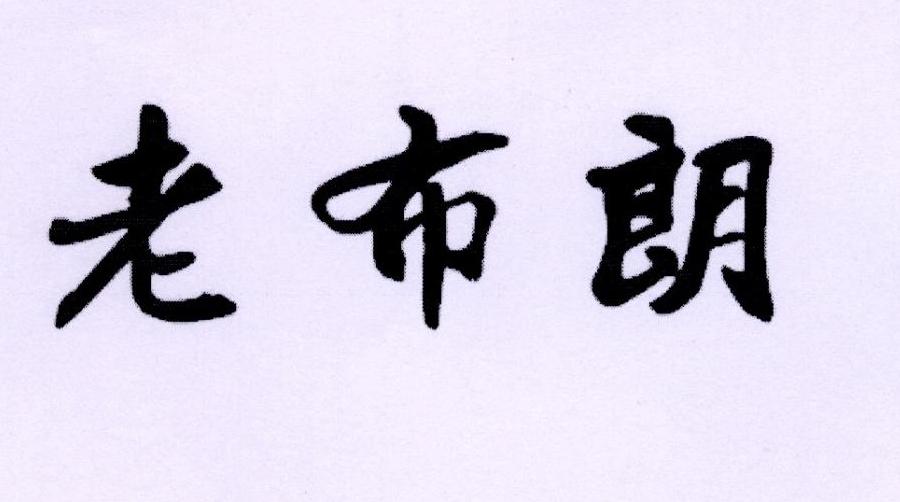 老布朗